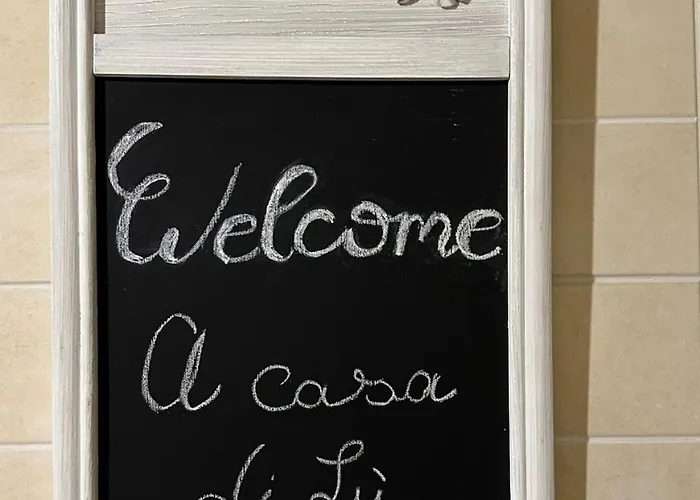 Welcome
A casa
di Lù